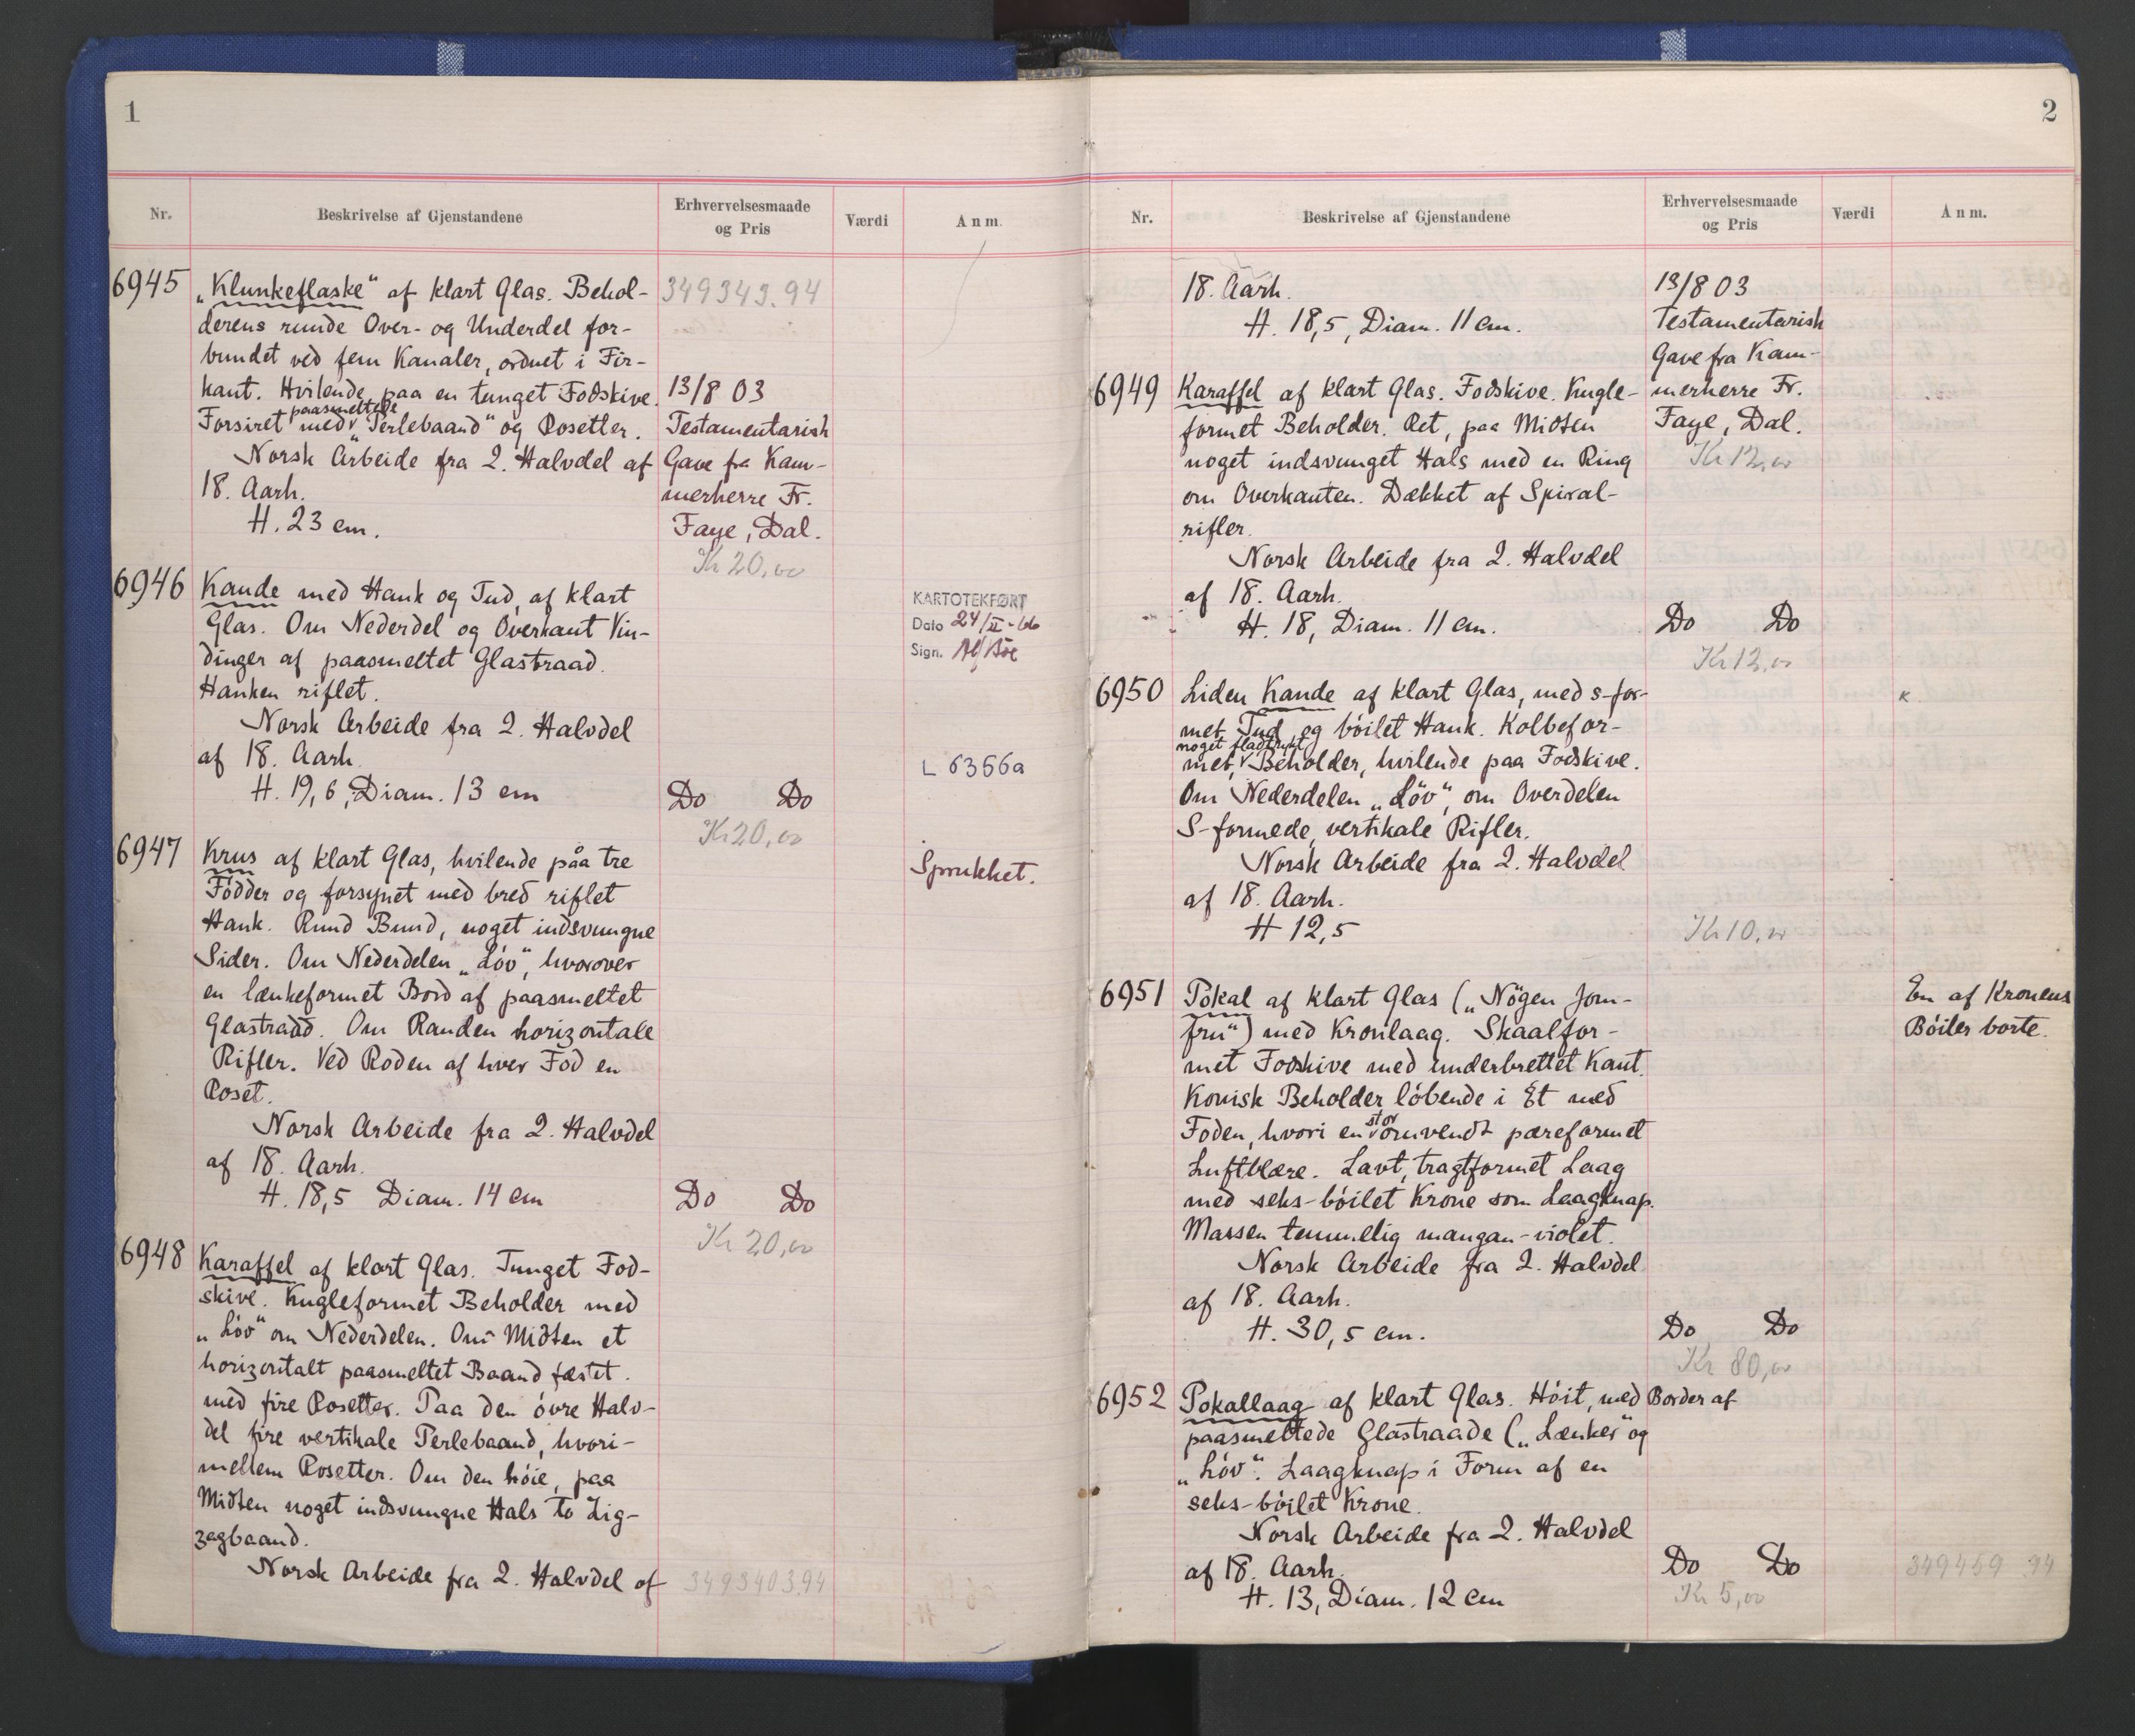 1
Nr.
Beskrivelse af Gjenstandene
Erhvervelsesmaade
og Pris
Værdi
Anm.
6945
„Klunkeflaske“ af klart Glas. Behol-
derens runde Over- og Underdel for-
bundet ved fem Kanaler, ordnet i Fir-
kant. Hvilende paa en tunget Fodskive.
paasmeltede
Forsiret med „Perlebaand“ og Rosetter.
Norsk Arbeide fra 2. Halvdel af
18. Aarh.
H. 23 cm.
349343.94
13/8 03
Testamentarish
Gave fra Kam-
merherre Fr.
Faye, Dal.
Kr 20,00
6946
Kande med Hank og Tud, af klart
Glas. Om Nederdel og Overkant Vin-
dinger af paasmeltet Glastraad.
Hanken riflet.
Norsk Arbeide fra 2. Halvdel
af 18. Aarh.
H. 19,6, Diam. 13 cm
Do Do
Kr 20,00
KARTOTEKFØRT
Dato 24/II-66
Sign.
L 6356a
6947
Krus af klart Glas, hvilende påa tre
Födder og forsynet med bred riflet
Hank. Rund Bund, noget indsvungne
Sider. Om Nederdelen „Löv“, hvorover
en lænkeformet Bord af paasmeltet
Glastraad. Om Randen horizontale
Rifler. Ved Roden af hver Fod en
Roset.
Norsk Arbeide fra 2. Halvdel
af 18. Aarh.
H. 18,5 Diam. 14 cm
Do Do
Kr 20,00
Sprukket.
6948
Karaffel af klart Glas. Tunget Fod-
skive. Kugleformet Beholder med
„Löv“ om Nederdelen. Om Midten et
horizontalt paasmeltet Baand fæstet
med fire Rosetter. Paa den övre Halv-
del fire vertikale Perlebaand, hvori-
mellem Rosetter. Om den höie, paa
Midten noget indsvungne Hals to Zig-
zagbaand.
Norsk Arbeide fra 2. Halvdel af
3493403.94
2
Nr.
Beskrivelse af Gjenstandene
Erhvervelsesmaade
og Pris
Værdi
Anm.
18. Aarh.
H. 18,5, Diam. 11 cm.
13/8 03
Testamentarish
Gave fra Kam-
merherre Fr.
Faye, Dal.
Kr 12,00
6949
Karaffel af klart Glas. Fodskive. Kugle-
formet Beholder. Ret, paa Midten
noget indsvunget Hals med en Ring
om Overkanten. Dækket af Spiral-
rifler.
Norsk Arbeide fra 2. Halvdel
af 18. Aarh.
H. 18, Diam. 11 cm.
Do Do
Kr 12,00
6950
Liden Kande af klart Glas, med s-for-
met Tud og böilet Hank. Kolbefor-
noget fladtrykt
met, Beholder, hvilende paa Fodskive.
Om Nederdelen „Löv“, om Overdelen
S-formede, vertikale Rifler.
Norsk Arbeide fra 2. Halvdel
af 18. Aarh.
H 12,5
Kr 10,00
6951
Pokal af klart Glas („Nögen Jom-
fru“) med Kronlaag. Skaalfor-
met Fodskive med underbrettet Kant.
Konisk Beholder löbende i Et med
stor
Foden, hvori en omvendt pæreformet
Luftblære. Lavt, tragtformet Laag
med seks-böilet Krone som Laagknap.
Massen temmelig mangan-violet.
Norsk Arbeide fra 2. Halvdel
af 18. Aarh.
H. 30,5 cm.
Do Do
Kr 80,00
En af Kronens
Böiler borte.
6952
Pokallaag af klart Glas. Höit, med Border af
paasmeltede Glastraade („Lænker“ og
„Löv“. Laagknap i Form af en
seks-böilet Krone.
Norsk Arbeide fra 2. Halvdel
af 18. Aarh.
H. 13, Diam. 12 cm
Do Do
Kr 5,00
349459 94